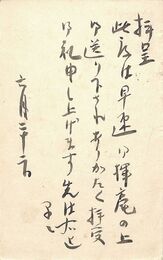 拝呈
此度は早速御揮毫の上
御送り下されありがたく拝受
御礼申し上げます先は右迄
早々
六月二十二日